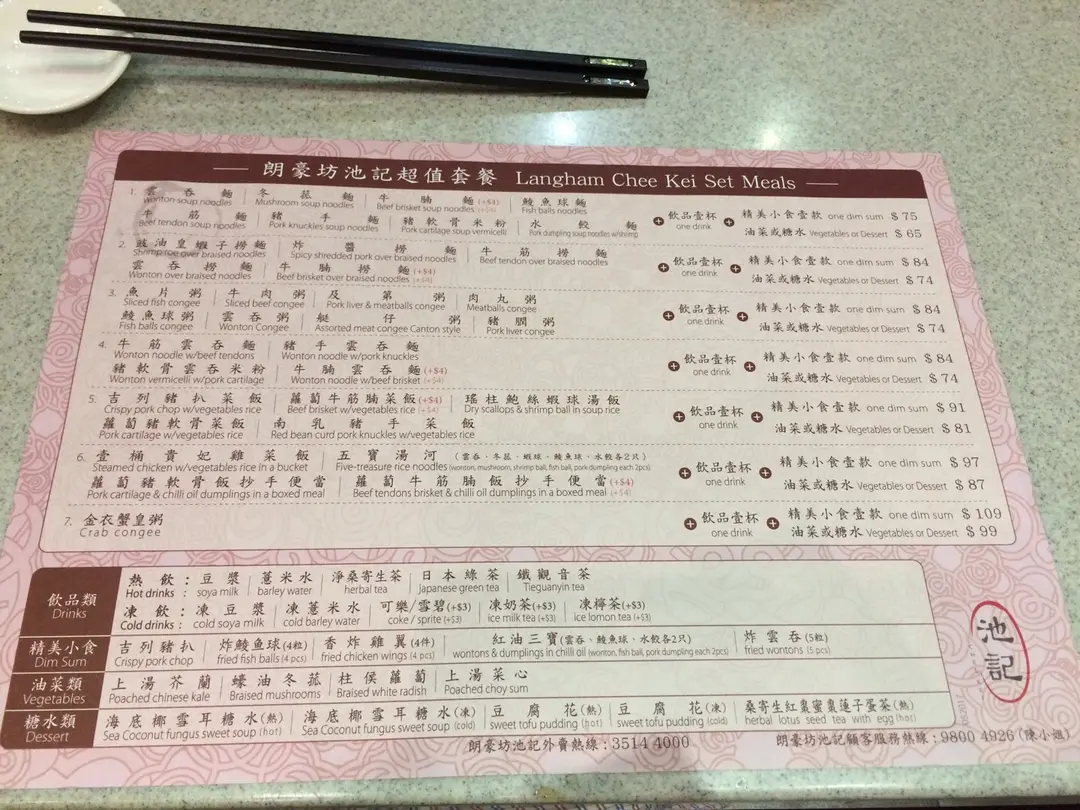 朗豪坊池記超值套餐 Langham Chee Kei Set Meals
1. 雲吞麵 冬菇麵 牛腩麵(+$4) 鯪魚球麵
Wonton soup noodles Mushroom soup noodles Beef brisket soup noodles (+$4) Fish balls noodles
牛筋麵 豬手麵 豬軟骨米粉 水餃麵
Beef tendon soup noodles Pork knuckles soup noodles Pork cartilage soup vermicelli Pork dumpling soup noodles w/shrimp
+ 飲品壹杯 one drink + 精美小食壹款 one dim sum $ 75
油菜或糖水 Vegetables or Dessert $ 65
2. 豉油皇蝦子撈麵 炸醬撈麵 牛筋撈麵
Shrimp roe over braised noodles Spicy shredded pork over braised noodles Beef tendon over braised noodles
雲吞撈麵 牛腩撈麵(+$4)
Wonton over braised noodles Beef brisket over braised noodles (+$4)
+ 飲品壹杯 one drink + 精美小食壹款 one dim sum $ 84
油菜或糖水 Vegetables or Dessert $ 74
3. 魚片粥 牛肉粥 及第粥 肉丸粥
Sliced fish congee Sliced beef congee Pork liver & meatballs congee Meatballs congee
鯪魚球粥 雲吞粥 艇仔粥 豬膶粥
Fish balls congee Wonton Congee Assorted meat congee Canton style Pork liver congee
+ 飲品壹杯 one drink + 精美小食壹款 one dim sum $ 84
油菜或糖水 Vegetables or Dessert $ 74
4. 牛筋雲吞麵 豬手雲吞麵
Wonton noodle w/beef tendons Wonton noodle w/pork knuckles
豬軟骨雲吞米粉 牛腩雲吞麵(+$4)
Wonton vermicelli w/pork cartilage Wonton noodle w/beef brisket (+$4)
+ 飲品壹杯 one drink + 精美小食壹款 one dim sum $ 84
油菜或糖水 Vegetables or Dessert $ 74
5. 吉列豬扒菜飯 蘿蔔牛筋腩菜飯(+$4) 瑤柱鮑絲蝦球湯飯
Crispy pork chop w/vegetables rice Beef brisket w/vegetables rice (+$4) Dry scallops & shrimp ball in soup rice
蘿蔔豬軟骨菜飯 南乳豬手菜飯
Pork cartilage w/vegetables rice Red bean curd pork knuckles w/vegetables rice
+ 飲品壹杯 one drink + 精美小食壹款 one dim sum $ 91
油菜或糖水 Vegetables or Dessert $ 81
6. 壹桶貴妃雞菜飯 五寶湯河 (雲吞、冬菇、蝦球、鯪魚球、水餃各2只)
Steamed chicken w/vegetables rice in a bucket Five-treasure rice noodles (wonton, mushroom, shrimp ball, fish ball, pork dumpling each 2pcs)
蘿蔔豬軟骨飯抄手便當 蘿蔔牛筋腩飯抄手便當(+$4)
Pork cartilage & chilli oil dumplings in a boxed meal Beef tendons brisket & chilli oil dumplings in a boxed meal (+$4)
+ 飲品壹杯 one drink + 精美小食壹款 one dim sum $ 97
油菜或糖水 Vegetables or Dessert $ 87
7. 金衣蟹皇粥
Crab congee
+ 飲品壹杯 one drink + 精美小食壹款 one dim sum $ 109
油菜或糖水 Vegetables or Dessert $ 99
飲品類
Drinks
熱飲：豆漿 薏米水 淨桑寄生茶 日本綠茶 鐵觀音茶
Hot drinks : soya milk barley water herbal tea japanese green tea Tieguanyin tea
凍飲：凍豆漿 凍薏米水 可樂/雪碧(+$3) 凍奶茶(+$3) 凍檸茶(+$3)
Cold drinks : cold soya milk cold barley water coke / sprite (+$3) ice milk tea (+$3) ice lomon tea (+$3)
精美小食
Dim Sum
吉列豬扒 炸鯪魚球(4粒) 香炸雞翼(4件) 紅油三寶(雲吞、鯪魚球、水餃各2只) 炸雲吞(5粒)
Crispy pork chop fried fish balls (4 pcs) fried chicken wings (4 pcs) wontons & dumplings in chilli oil (wonton, fish ball, pork dumpling each 2pcs) fried wontons (5 pcs)
油菜類
Vegetables
上湯芥蘭 蠔油冬菇 柱侯蘿蔔 上湯菜心
Poached chinese kale Braised mushrooms Braised white radish Poached choy sum
糖水類
Dessert
海底椰雪耳糖水(熱) 海底椰雪耳糖水(凍) 豆腐花(熱) 豆腐花(凍) 桑寄生紅棗蜜棗蓮子蛋茶(熱)
Sea Coconut fungus sweet soup (hot) Sea Coconut fungus sweet soup (cold) sweet tofu pudding (hot) sweet tofu pudding (cold) herbal lotus seed tea with egg (hot)
池記
朗豪坊池記外賣熱線：3514 4000 朗豪坊池記顧客服務熱線：9800 4926 (陳小姐)